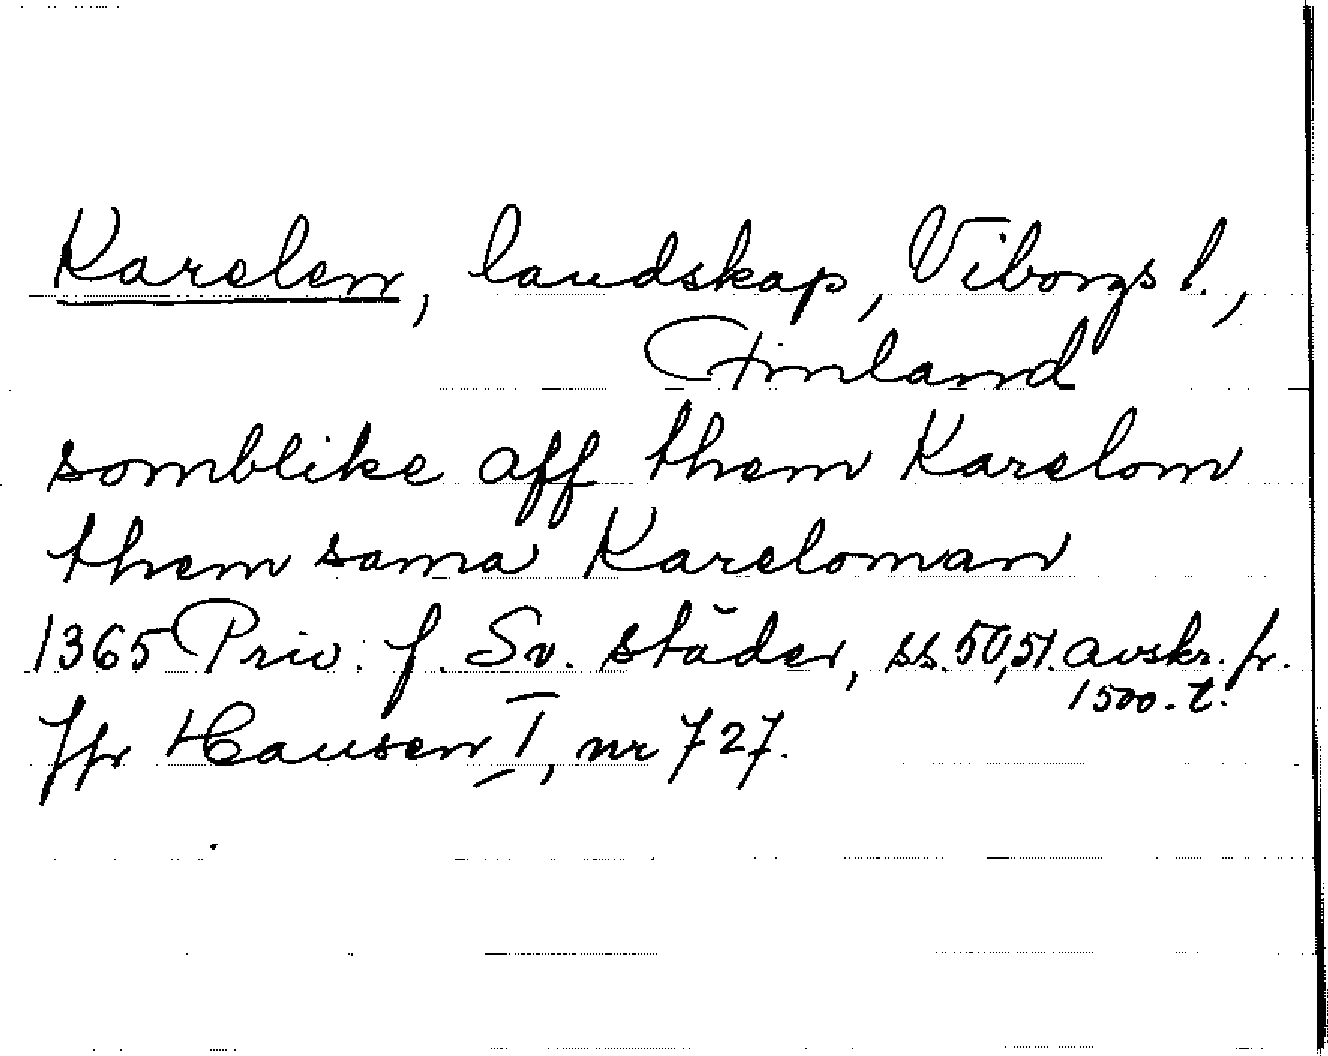 Karelen, landskap, Viborgs l.,
Finland
somblike aff them Karelom
them sama Kareloman
1365 Priv. f. Sv. städer, ss. 50, 51. avskr. fr.
1500-t.
Jfr Hausen I, nr 727.